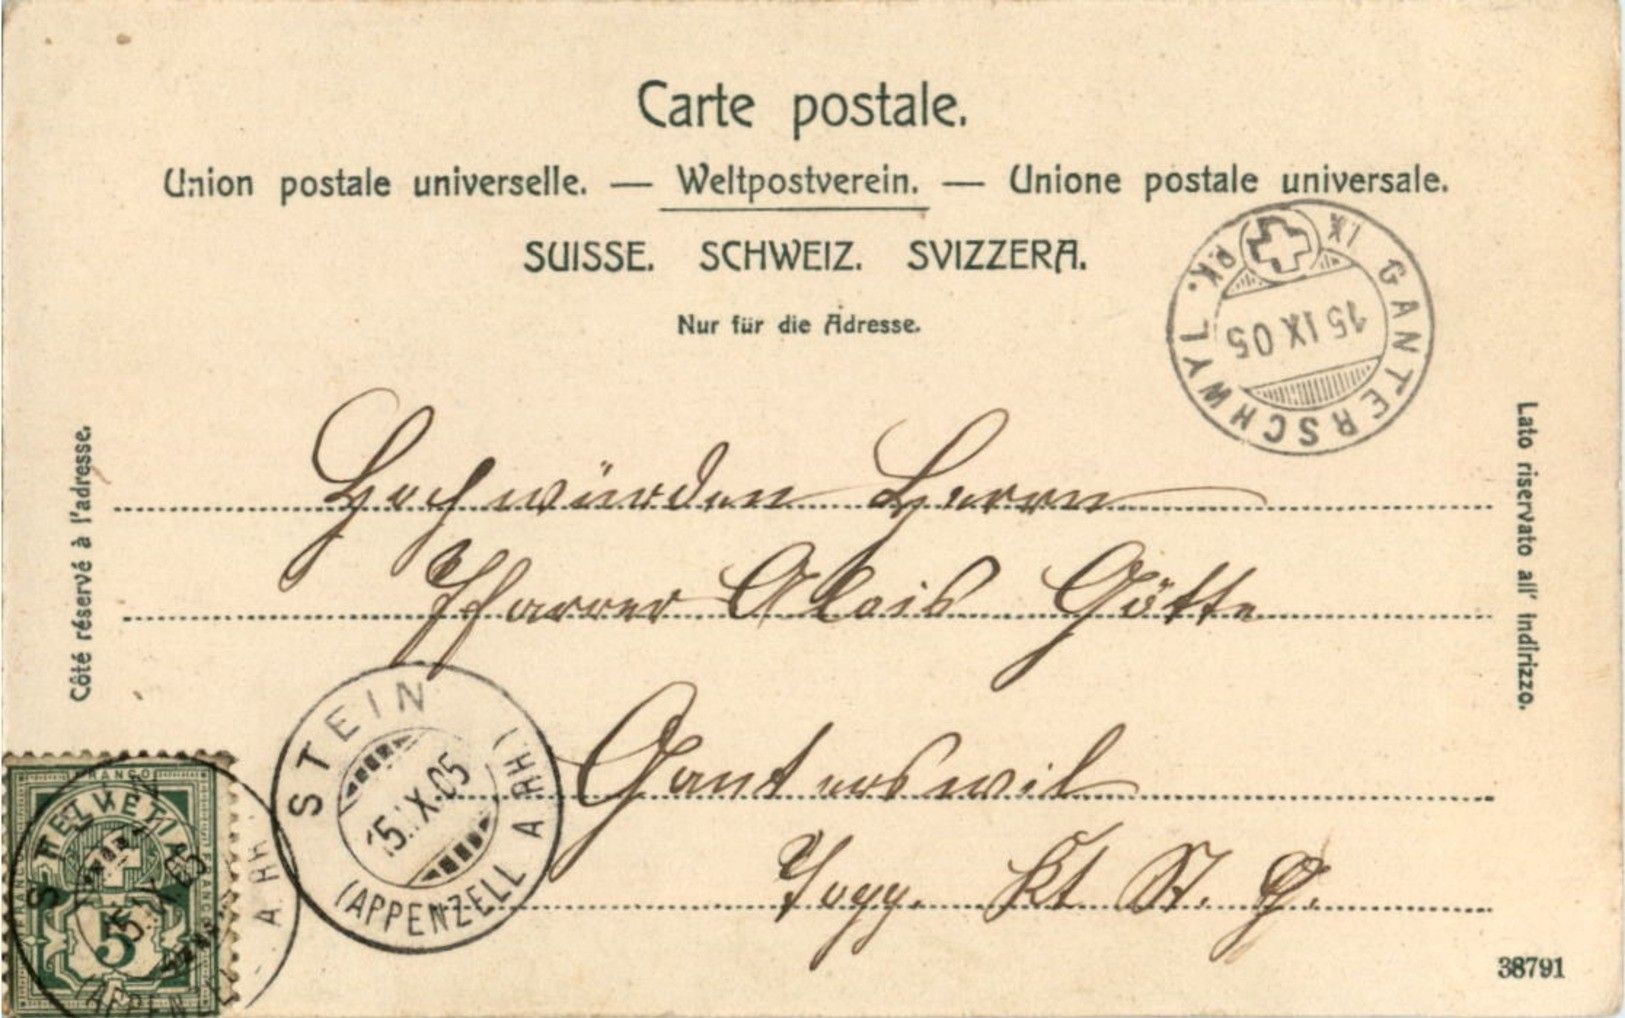 Carte postale.
Union postale universelle. — Weltpostverein. — Unione postale universale.
SUISSE. SCHWEIZ. SVIZZERA.
Nur für die Adresse.
GANTERSCHWYL. R.K. IX
15 IX 05
Côté réservé à l'adresse.
Lato riservato all' indirizzo.
Hochwürden Herrn
Pfarrer Alois Götte
Ganterswil
Togg. Kt St. G.
STEIN
15.IX.05
(APPENZELL A.RH.)
FRANCO
HELVETIA
5
38791